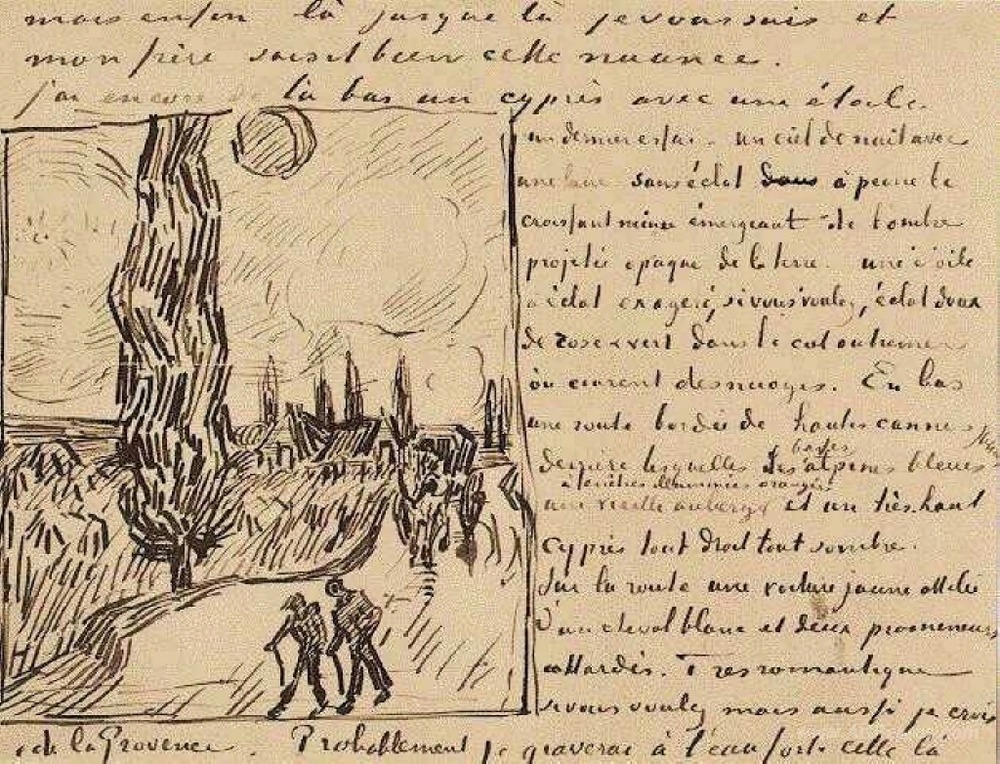 mais enfin là jusque là je vous suis et
mon frère saisit bien cette nuance.
j'ai encore de là bas un cyprès avec une étoile.
un dernier essai – un ciel de nuit avec
une lune sans éclat dans à peine le
croissant mince émergeant de l'ombre
projetée opaque de la terre. une étoile
à éclat exagéré, si vous voulez, éclat doux
de rose & vert dans le ciel outremer
où courent des nuages. En bas
une route bordée de hautes cannes
derrière lesquelles les basses alpines bleues
à fenêtres illuminées orangées
une vieille auberge et un très haut
cyprès tout droit tout sombre.
Sur la route une voiture jaune attelée
d'un cheval blanc et deux promeneurs
attardés. Très romantique
si vous voulez mais aussi je crois
de la Provence. Probablement je graverai à l'eau forte celle là